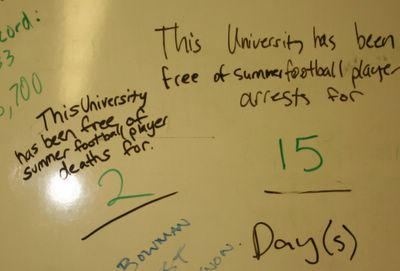 cord:
33
,700
This University has been
free of summer football player
arrests for
15
Day(s)
This University
has been free of
summer football player
deaths for.
2
BOWMAN
ST
NON.